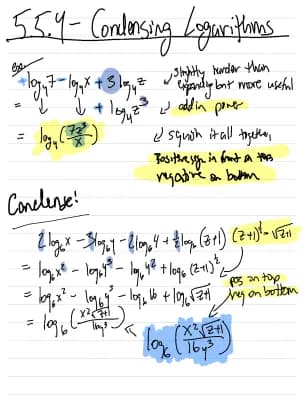 5.5.4 - Condensing Logarithms
Ex:
+log₄7 - log₄x + 3log₄z
slightly harder than
expanding but more useful
= ↓ ↓ + log₄z³
add in power
= log₄(7z³/x)
squish it all together,
positive sign in front on top
negative on bottom
Condense!
2log₆x - 3log₆y - 2log₆4 + ½log₆(z+1) (z+1)^½ = √z+1
= log₆x² - log₆y³ - log₆4² + log₆(z+1)^½
= log₆x² - log₆y³ - log₆16 + log₆√z+1
pos on top
neg on bottom
= log₆(x²√z+1/16y³)
log₆(x²√z+1/16y³)